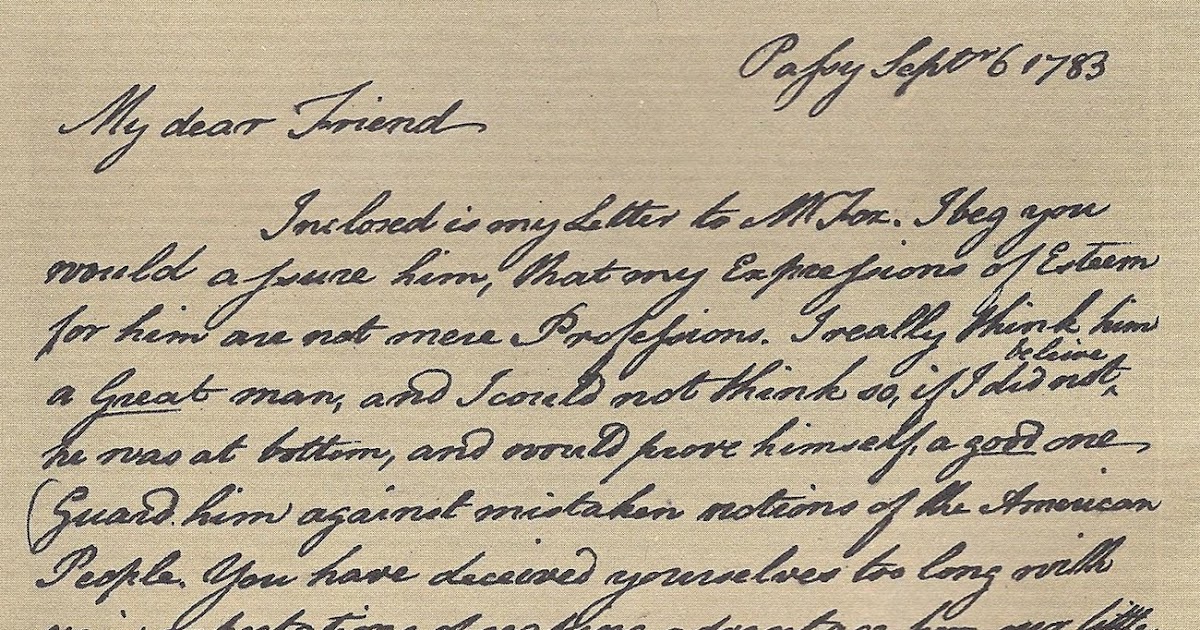 Passy Septr 6 1783
My dear Friend
Inclosed is my Letter to Mr Fox. I beg you
would assure him, that my Expressions of Esteem
for him are not mere Professions. I really think him
a Great man, and I could not think so, if I did not ‸ beleive
he was at bottom, and would prove himself, a good one
(Guard him against mistaken notions of the American
People. You have deceived yourselves too long with
vain expectations of making advantage from our little